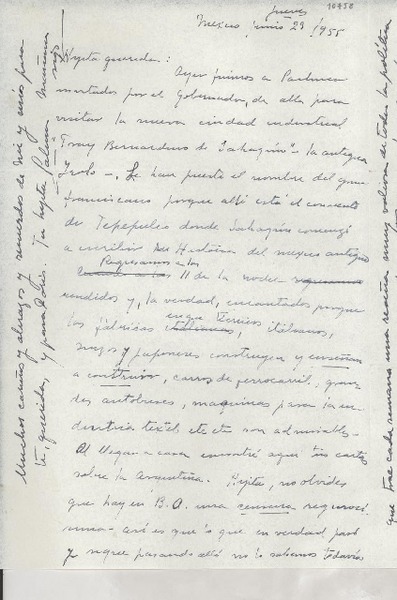 10458
Jueves
Mexico, junio 23/1955
Hijita querida:
Ayer fuimos a Pachuca
invitados por el Gobernador, de alla para
visitar la nueva ciudad industrial
Fray Bernardino de Sahagún" - la antigua
Irolo -. Le han puesto el nombre del gran
franciscano porque allí está el convento
de Tepepulco donde Sahagún comenzó
a escribir su Historia del mexico antiguo
Regresamos a las
11 de la noche
rendidos y, la verdad, encantados porque
las fábricas en que técnicos italianos,
suizos y japoneses construyen y enseñan
a construir, carros de ferrocarril, gran-
des autobuses, maquinas para la in-
dustria textil etc etc son admirables -
Al llegar a casa encontré aquí tus cartas
sobre la Argentina. Hijita, no olvides
que hay en B.A. una censura rigurosí-
sima - así es que lo que en verdad pasó
y sigue pasando allá no lo sabemos todavía
que trae cada semana una reseña muy valiosa de toda la política
Muchos cariños y abrazos y recuerdos de mi y mios para
ti, querida, y para Doris. Tu hijita Palma